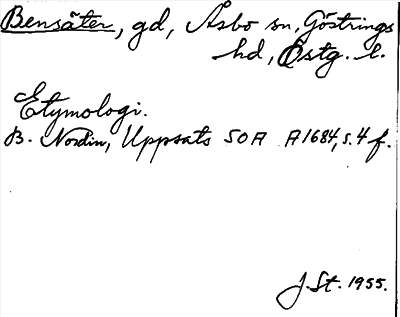 Bensäter, gd, Asbo sn, Göstrings
hd, Östg. l.
Etymologi.
B. Nordin, Uppsats SOA A1684, s. 4 f.
J. St. 1955.